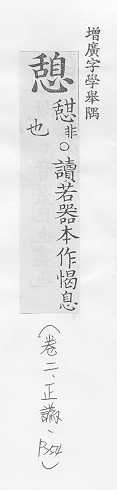 增廣字學舉隅
憩 憇非○讀若器本作愒息
也
(卷二、正譌、